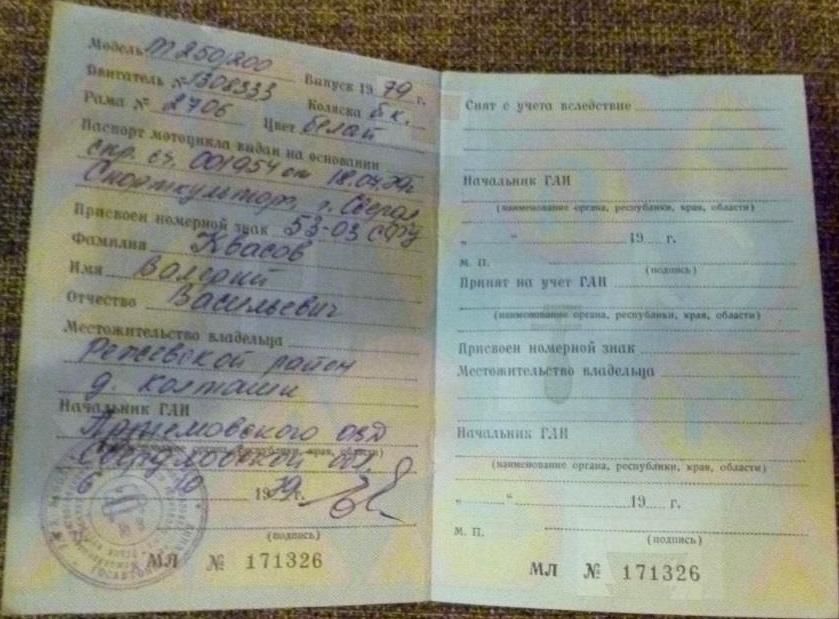 Модель М 250/200
Двигатель № 1308333 Выпуск 19 79 г.
Рама № 2706 Коляска б к.
Цвет белай
Паспорт мотоцикла выдан на основании
спр. сч. 001954 от 18.04.79г
г. Сверд
Присвоен номерной знак 53-03
Фамилия Квасов
Имя Валерий
Отчество Васильевич
Местожительство владельца
Режевской район
д. Колташи
Начальник ГАИ
Артемовского ОВД
Свердловской обл.
(наименование органа, республики, края, области)
6 10 1979 г.
(подпись)
МЛ № 171326
Снят с учета вследствие
Начальник ГАИ
(наименование органа, республики, края, области)
„ “ 19 г.
М. П.
(подпись)
Принят на учет ГАИ
(наименование органа, республики, края, области)
Присвоен номерной знак
Местожительство владельца
Начальник ГАИ
(наименование органа, республики, края, области)
„ “ 19 г.
М. П.
(подпись)
МЛ № 171326